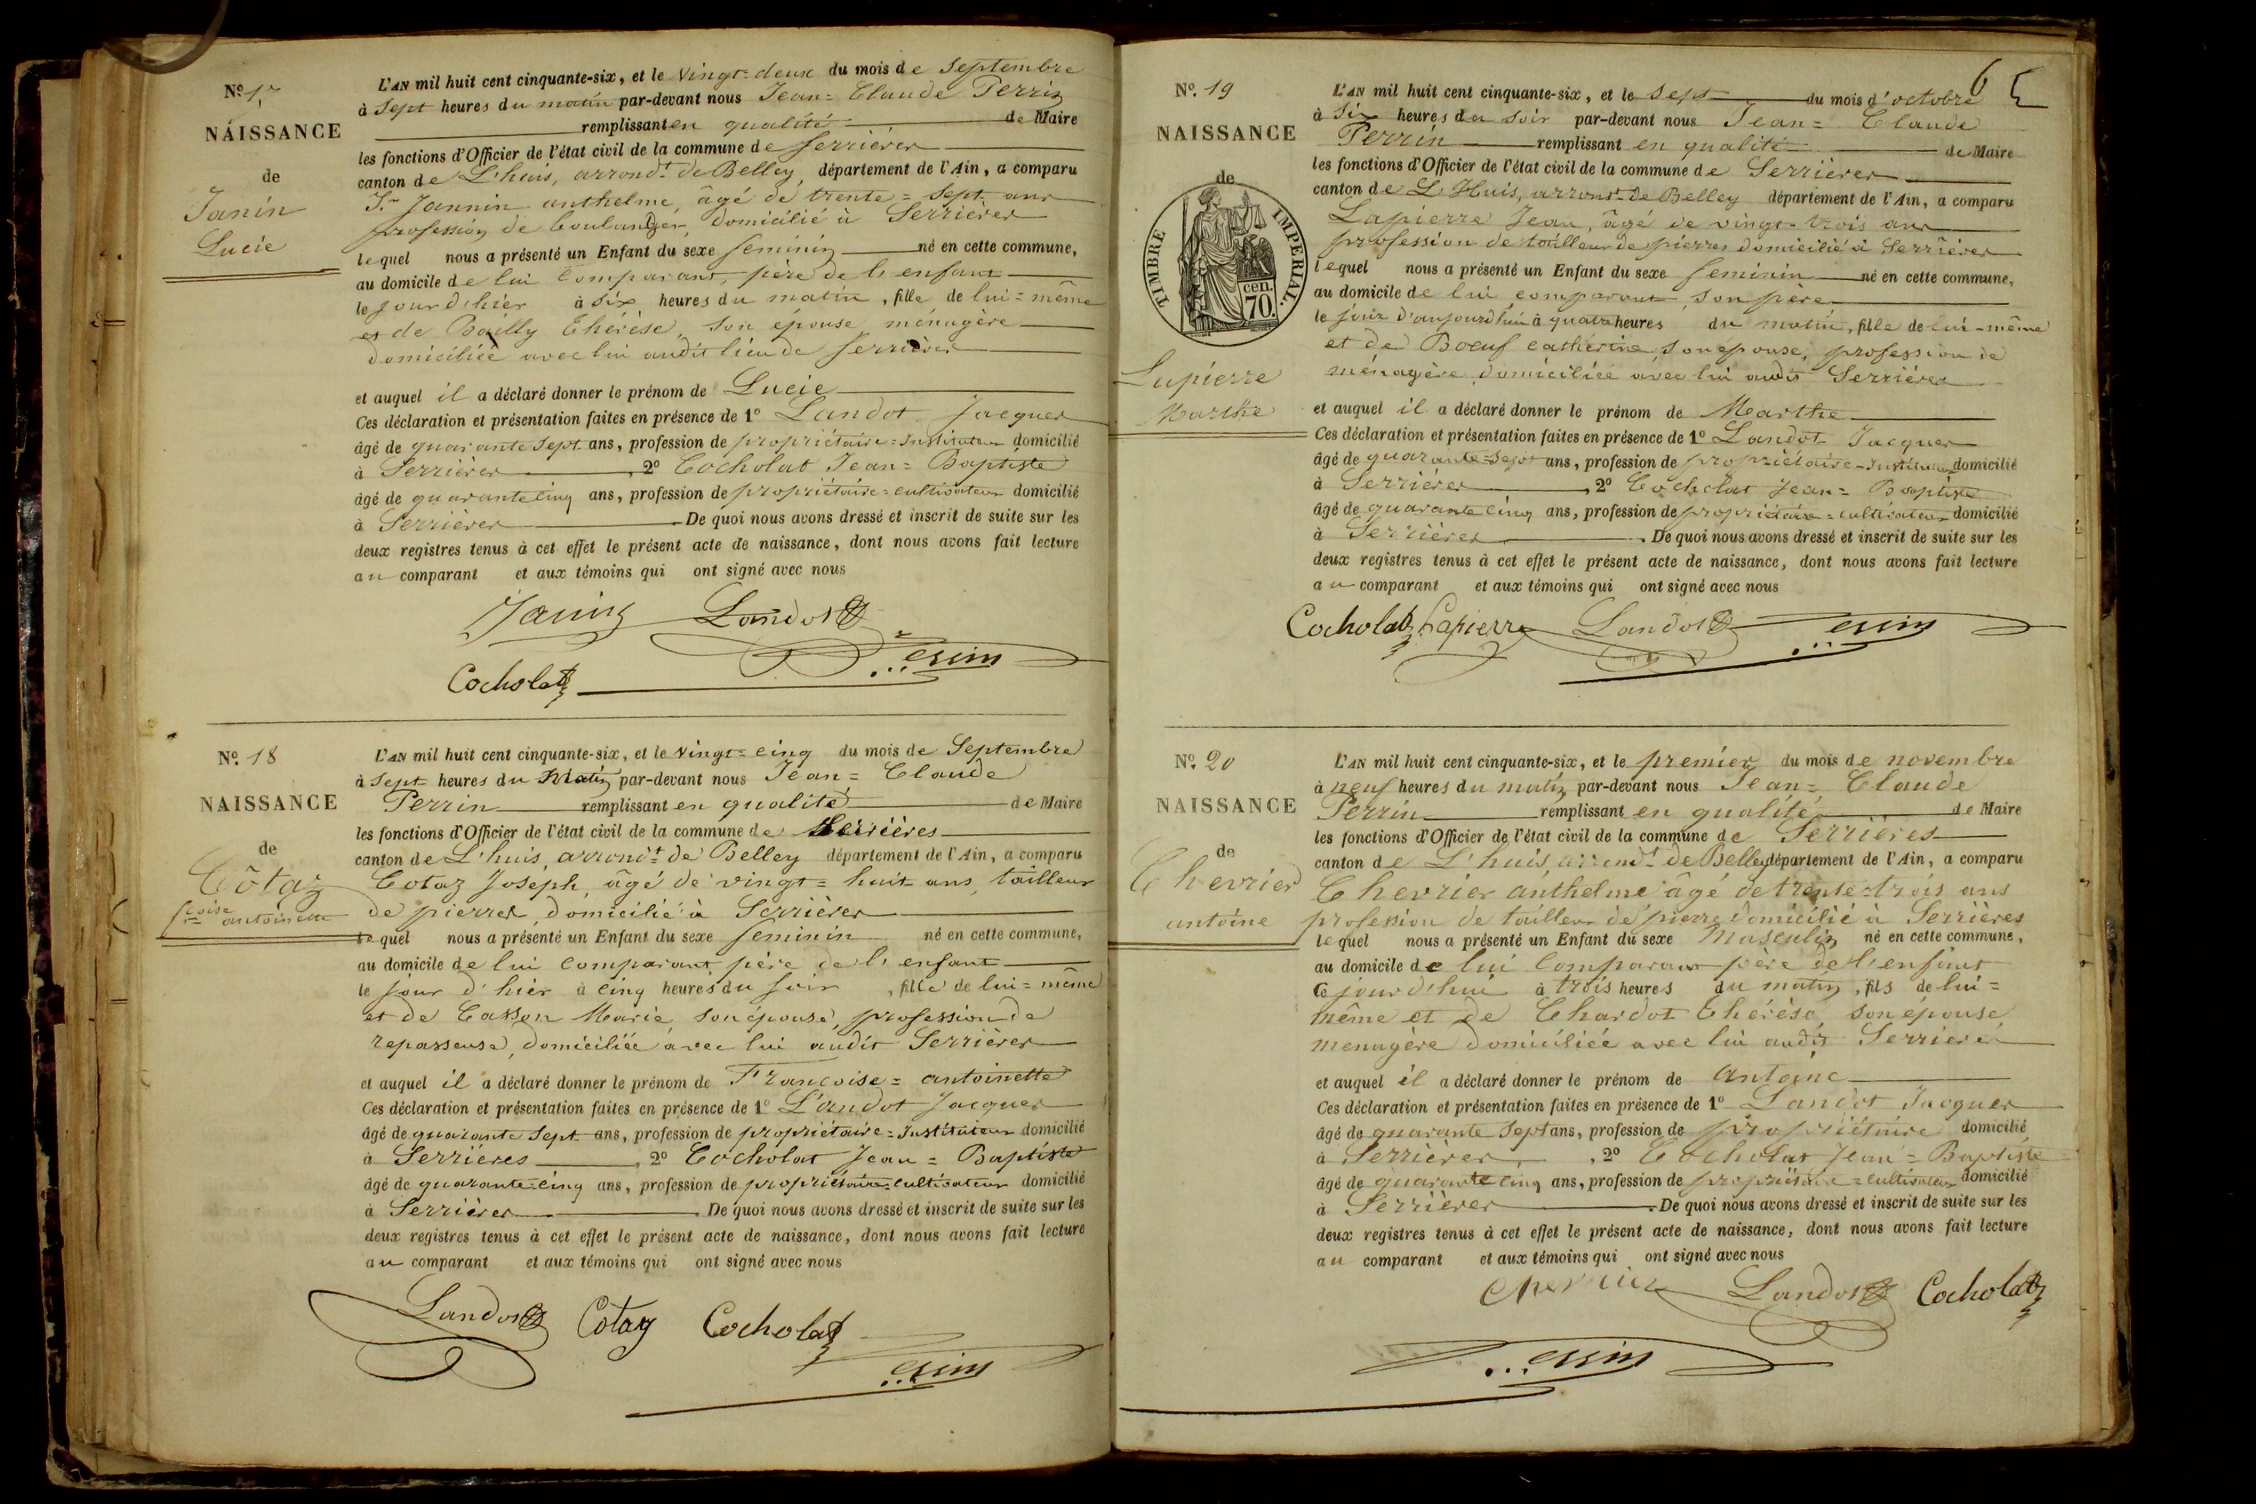 Nº 17
NAISSANCE
de
Janin
Lucie
L'AN mil huit cent cinquante-six, et le vingt=deux du mois de Septembre
à Sept heures du matin par-devant nous Jean=Claude Perrin
remplissant en qualité de Maire
les fonctions d'Officier de l'état civil de la commune de Serrières
canton de L'huis, arrond.t de Belley, département de l'Ain, a comparu
S.r Jannin anthelme, âgé de trente=Sept ans
profession de boulanger, domicilié à Serrières
lequel nous a présenté un Enfant du sexe feminin né en cette commune,
au domicile de lui Comparant, père de l'enfant
le jour d'hier à six heures du matin, fille de lui=même
et de Bailly Thérèse, son épouse, ménagère
domiciliée avec lui audit lieu de Serrières
et auquel il a déclaré donner le prénom de Lucie
Ces déclaration et présentation faites en présence de 1º Landot Jacques
âgé de quarante Sept ans, profession de propriétaire=Instituteur domicilié
à Serrières, 2º Cocholat Jean=Baptiste
âgé de quarante cinq ans, profession de propriétaire=cultivateur domicilié
à Serrières De quoi nous avons dressé et inscrit de suite sur les
deux registres tenus à cet effet le présent acte de naissance, dont nous avons fait lecture
au comparant et aux témoins qui ont signé avec nous
Janin Landot
Cocholat Perrin
Nº 18
NAISSANCE
de
Côtaz
f.coise antoinette
L'AN mil huit cent cinquante-six, et le vingt=cinq du mois de Septembre
à Sept heures du Matin par-devant nous Jean=Claude
Perrin remplissant en qualité de Maire
les fonctions d'Officier de l'état civil de la commune de Serrières
canton de L'huis, arrond.t de Belley département de l'Ain, a comparu
Cotaz Joseph, âgé de vingt=huit ans, tailleur
de pierres, domicilié à Serrières
lequel nous a présenté un Enfant du sexe feminin né en cette commune,
au domicile de lui Comparant, père de l'enfant
le jour d'hier à cinq heures du soir, fille de lui=même
et de Casson Marie, son épouse, profession de
repasseuse, domiciliée avec lui audit Serrières
et auquel il a déclaré donner le prénom de Françoise=antoinette
Ces déclaration et présentation faites en présence de 1º Landot Jacques
âgé de quarante Sept ans, profession de propriétaire=Instituteur domicilié
à Serrières, 2º Cocholat Jean=Baptiste
âgé de quarante=cinq ans, profession de propriétaire=cultivateur domicilié
à Serrières De quoi nous avons dressé et inscrit de suite sur les
deux registres tenus à cet effet le présent acte de naissance, dont nous avons fait lecture
au comparant et aux témoins qui ont signé avec nous
Landot Cotaz Cocholat
Perrin
6
Nº 19
NAISSANCE
de
TIMBRE IMPERIAL.
70. cen.
Lapierre
Marthe
L'AN mil huit cent cinquante-six, et le sept du mois d'octobre
à Six heures du soir par-devant nous Jean=Claude
Perrin remplissant en qualité de Maire
les fonctions d'Officier de l'état civil de la commune de Serrières
canton de L'Huis, arrond.t de Belley département de l'Ain, a comparu
Lapierre Jean, âgé de vingt-trois ans
profession de tailleur de pierres domicilié à Serrières
lequel nous a présenté un Enfant du sexe feminin né en cette commune,
au domicile de lui comparant, son père
le jour d'aujourd'hui à quatre heures du matin, fille de lui-même
et de Boeuf catherine, son épouse, profession de
ménagère, domiciliée avec lui audit Serrières
et auquel il a déclaré donner le prénom de Marthe
Ces déclaration et présentation faites en présence de 1º Landot Jacques
âgé de quarante=Sept ans, profession de propriétaire-Instituteur domicilié
à Serrières, 2º Cocholat Jean=Baptiste
âgé de quarante cinq ans, profession de propriétaire=cultivateur domicilié
à Serrières. De quoi nous avons dressé et inscrit de suite sur les
deux registres tenus à cet effet le présent acte de naissance, dont nous avons fait lecture
au comparant et aux témoins qui ont signé avec nous
Cocholat Lapierre Landot Perrin
Nº 20
NAISSANCE
de
Chevrier
antoine
L'AN mil huit cent cinquante-six, et le premier du mois de novembre
à neuf heures du matin par-devant nous Jean=Claude
Perrin remplissant en qualité de Maire
les fonctions d'Officier de l'état civil de la commune de Serrières
canton de L'huis, arrond.t de Belley département de l'Ain, a comparu
Chevrier anthelme âgé de trente=trois ans
profession de tailleur de pierre domicilié à Serrières
lequel nous a présenté un Enfant du sexe Masculin né en cette commune,
au domicile de lui Comparant père de l'enfant
Ce jourd'hui à trois heures du matin, fils de lui=
même et de Chardot Thérèse, son épouse
menagère domiciliée avec lui audit Serrières
et auquel il a déclaré donner le prénom de Antoine
Ces déclaration et présentation faites en présence de 1º Landot Jacques
âgé de quarante Sept ans, profession de propriétaire domicilié
à Serrières, 2º Cocholat Jean=Baptiste
âgé de quarante cinq ans, profession de propriétaire=cultivateur domicilié
à Serrières De quoi nous avons dressé et inscrit de suite sur les
deux registres tenus à cet effet le présent acte de naissance, dont nous avons fait lecture
au comparant et aux témoins qui ont signé avec nous
Chevrier Landot Cocholat
Perrin